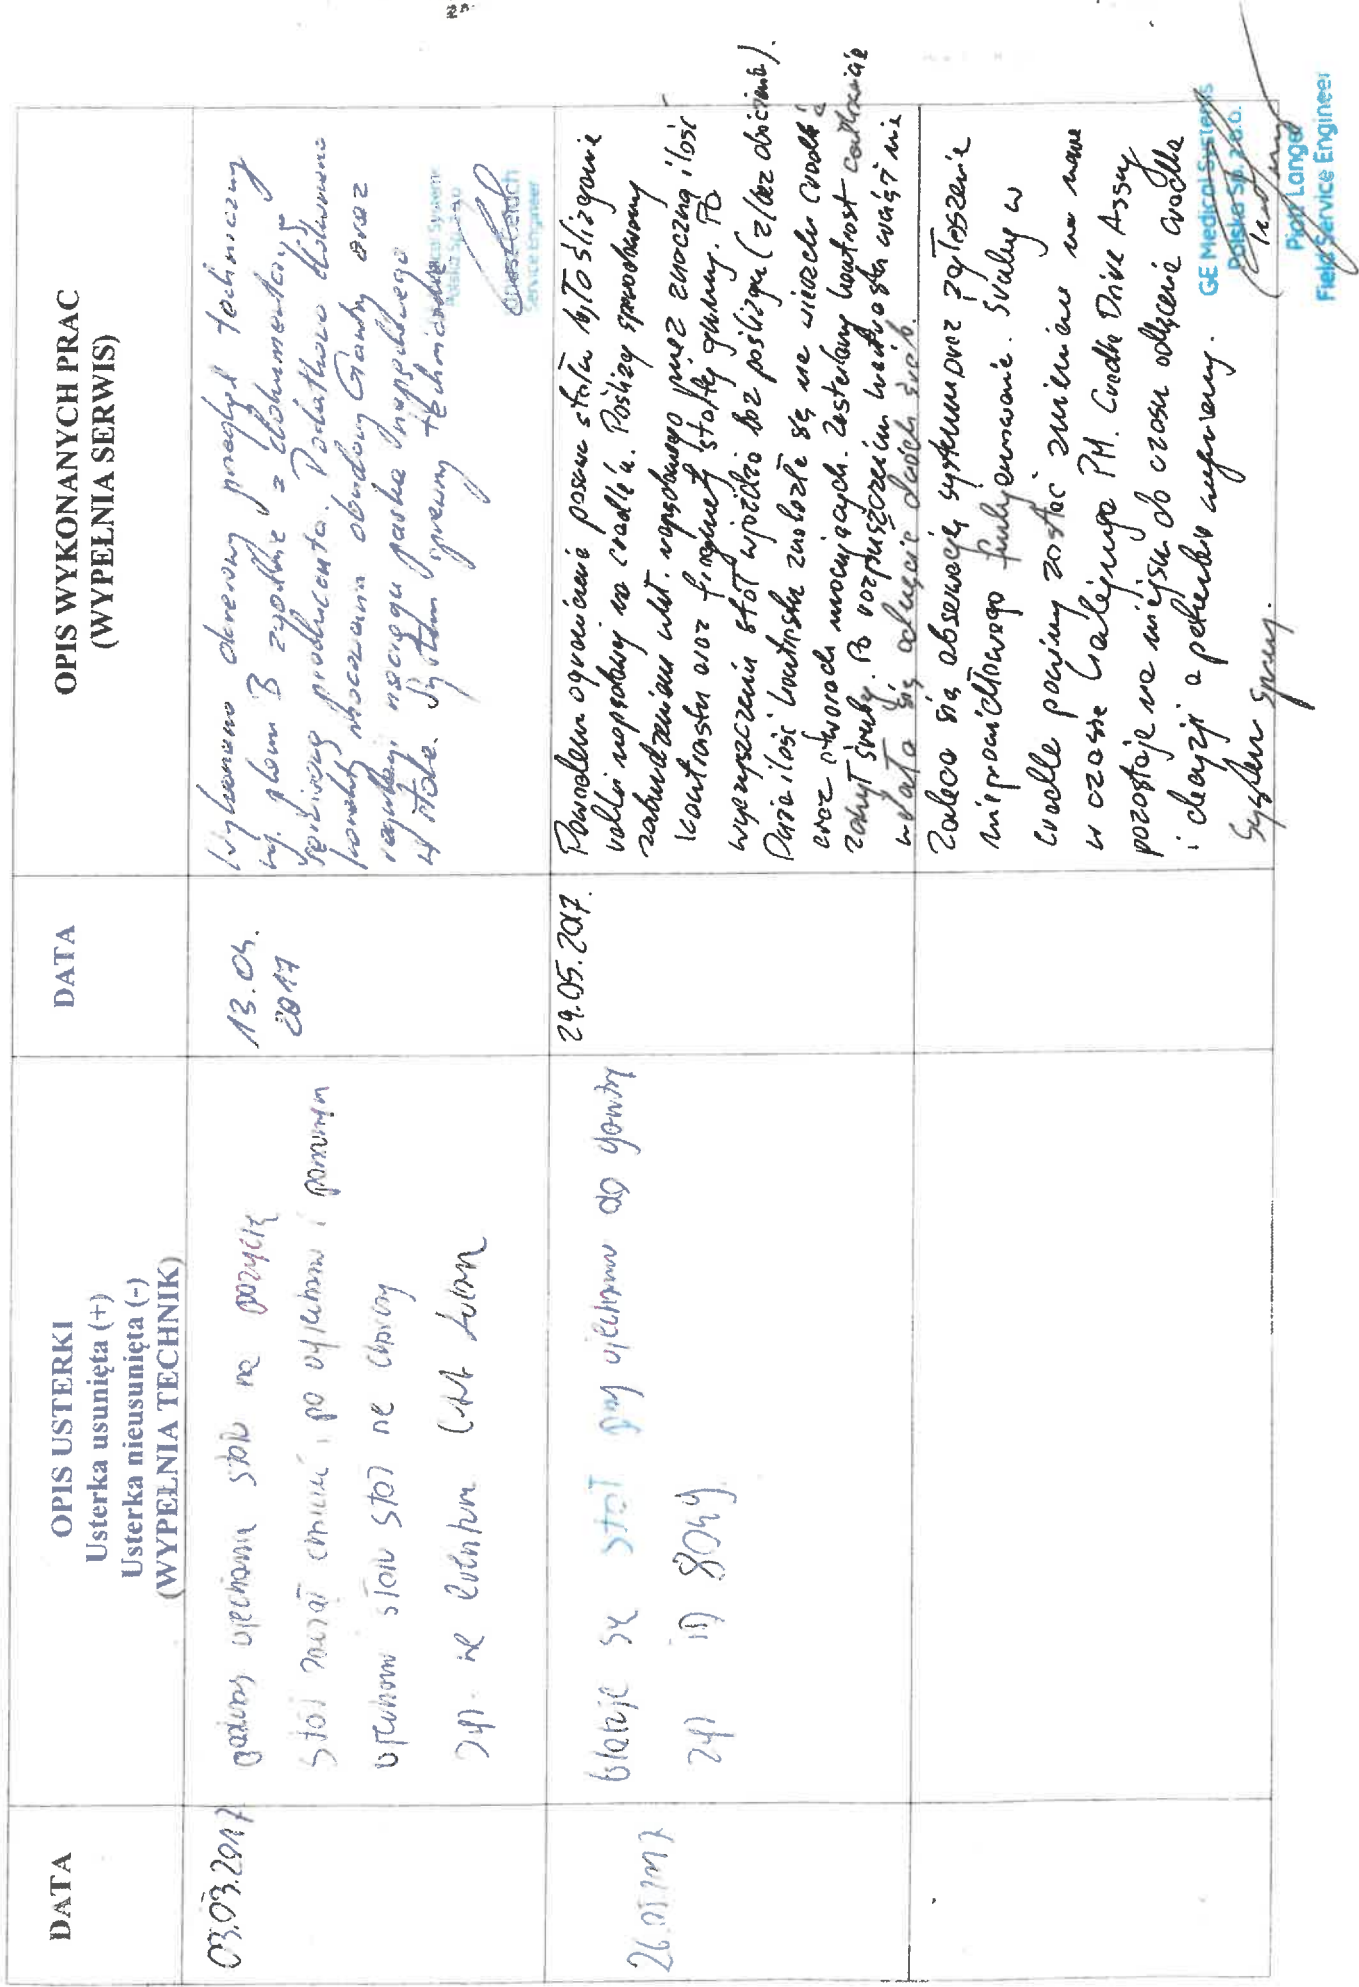 DATA
OPIS USTERKI
Usterka usunięta (+)
Usterka nieusunięta (-)
(WYPEŁNIA TECHNIK)
DATA
OPIS WYKONANYCH PRAC
(WYPEŁNIA SERWIS)
03.03.2017
podczas wjechania stołu na pozycję
stół zaczął i po wyjechaniu i ponownym
wjechaniu stołu stół ne
zgł. ne
13.04.
2017
Wykonano okresowy przegląd techniczny
wg. planu B zgodnie z dokumentacją
serwisową producenta. Dodatkowo dokonano
mocowania obudowy Gantry oraz
regulacji naciągu paska napędowego
w stole. System sprawny technicznie
Service Engineer
26.05.2017
blokuje się stół przy wjechaniu do gantry
zgł ID 8049
29.05.2017.
Powodem ograniczenia posuwu stołu było ślizganie
rolki napędowej na cradle'u. Poślizg spowodowany
zabrudzeniem napędowego przez znaczną ilość
kontrastu oraz fragment gumy. Po
wyczyszczeniu stół wjeżdża bez poślizgu (z/bez obciążenia).
Duża ilość kontrastu znalazła się na wierzchu cradle'a
oraz w otworach mocujących. Zastygły kontrast całkowicie
zakrył śruby. Po rozpuszczeniu kontrastu wciąż nie
udało się odkręcić dwóch śrub.
Zaleca się obserwację systemu oraz zgłoszenie
nieprawidłowego funkcjonowania. Śruby w
cradle powinny zostać zmienione na nowe
w czasie kolejnego PM. Cradle Drive Assy
pozostaje na miejscu do czasu odkręcenia cradla
i decyzji o potrzebie naprawy.
System sprawny.
GE Medical Systems
Polska Sp. z o.o.
Piotr Langa
Field Service Engineer